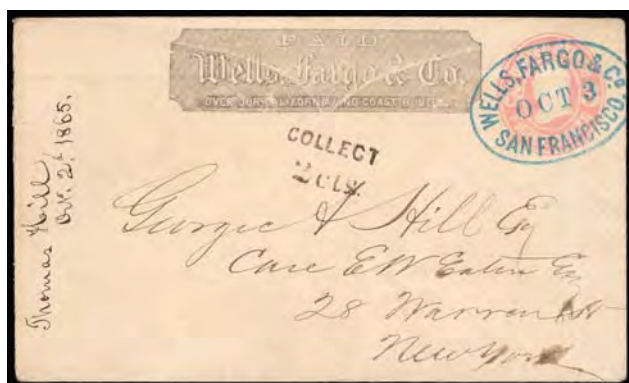 PAID
Wells, Fargo & Co.
OVER OUR CALIFORNIA AND COAST ROUTES
WELLS, FARGO & Co.
OCT 3
SAN FRANCISCO
COLLECT
2 cts.
Thomas Hill
Oct. 2d 1865.
George A Hill Esq
Care E W Eaton Esq
28 Warren St
New York